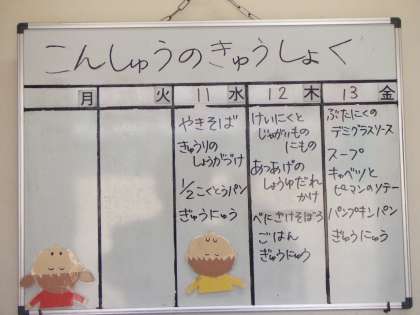 こんしゅうのきゅうしょく
月
火
11 水
12 木
13 金
やきそば
きゅうりの
しょうがづけ
1/2こくとうパン
ぎゅうにゅう
けいにくと
じゃがいもの
にもの
あつあげの
しょうゆだれ
かけ
べにさけそぼろ
ごはん
ぎゅうにゅう
ぶたにくの
デミグラスソース
スープ
キャベツと
ピーマンのソテー
パンプキンパン
ぎゅうにゅう